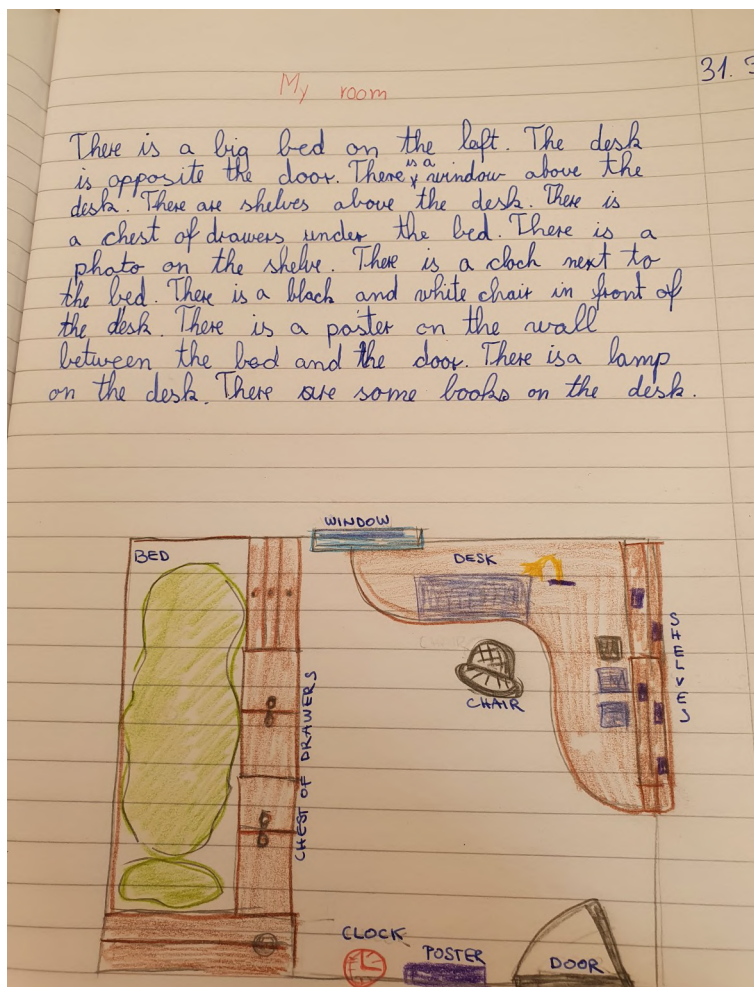 31. 3
My room
There is a big bed on the left. The desk
is opposite the door. There is a window above the
desk. There are shelves above the desk. There is
a chest of drawers under the bed. There is a
photo on the shelve. There is a clock next to
the bed. There is a black and white chair in front of
the desk. There is a poster on the wall
between the bed and the door. There is a lamp
on the desk. There are some books on the desk.
WINDOW
BED
DESK
SHELVES
CHAIR
CHEST OF DRAWERS
CLOCK
POSTER
DOOR